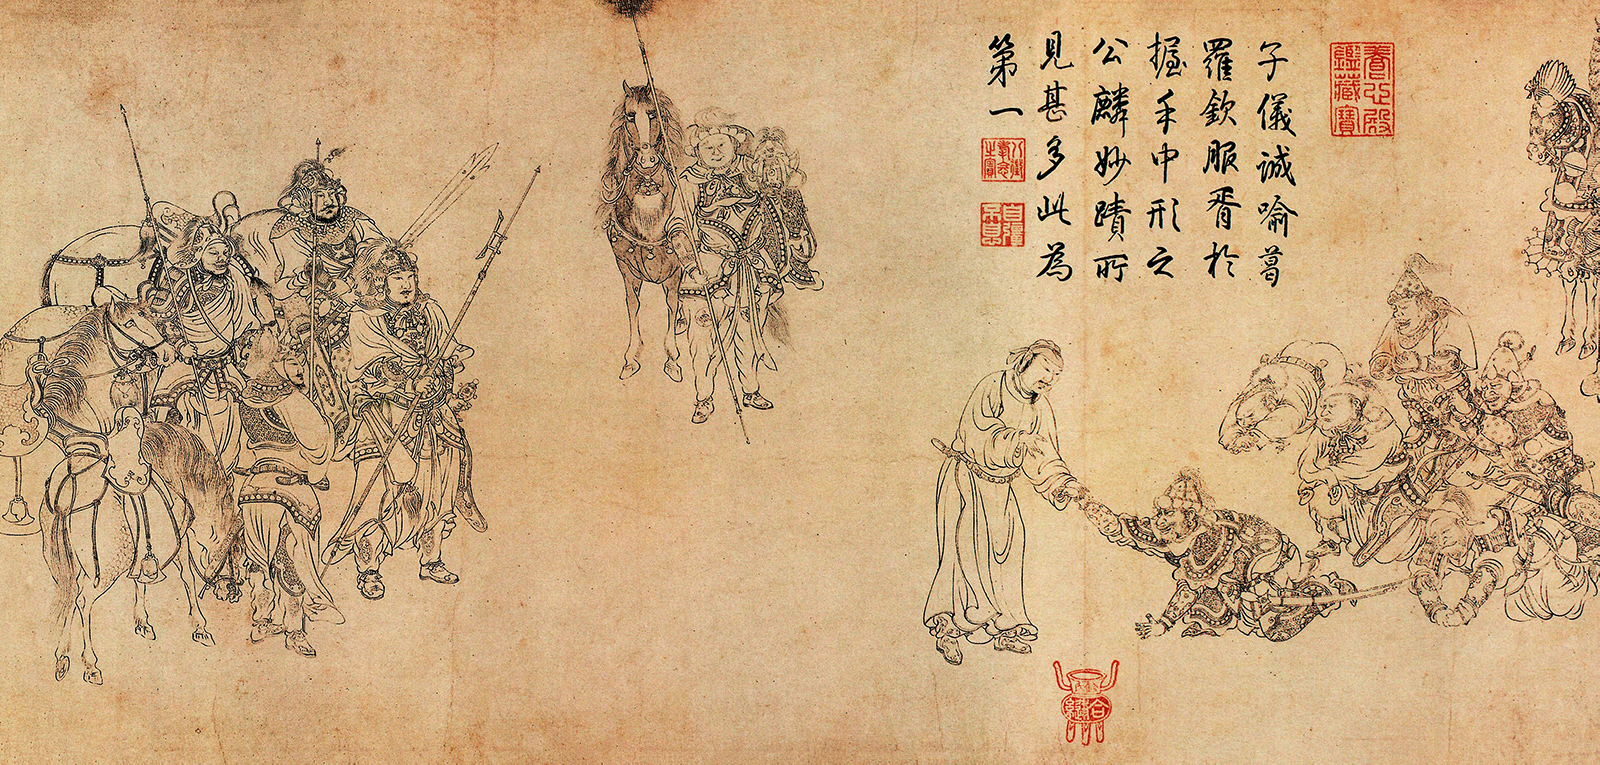 養心殿
鑑藏寶
子儀誠喻葛
羅欽服胥於
握手中形之
公麟妙蹟所
見甚多此為
第一
八徵
耄念
之寶
自彊
不息